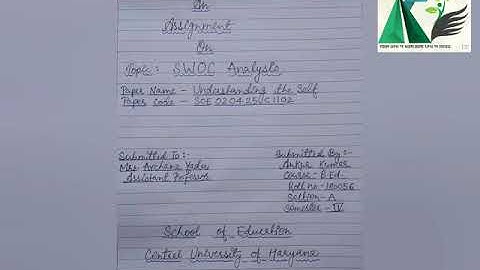 An
Assignment
On
Topic : SWOC Analysis
Paper Name - Understanding the Self
Paper Code - SOE 02 04 25
Submitted To :-
Mrs. Archana Yadav
Assistant Professor
Submitted By :-
Ankur Kumar
Course - B.Ed.
Roll no -
Section - A
Semester - IV
School of Education
Central University of Haryana